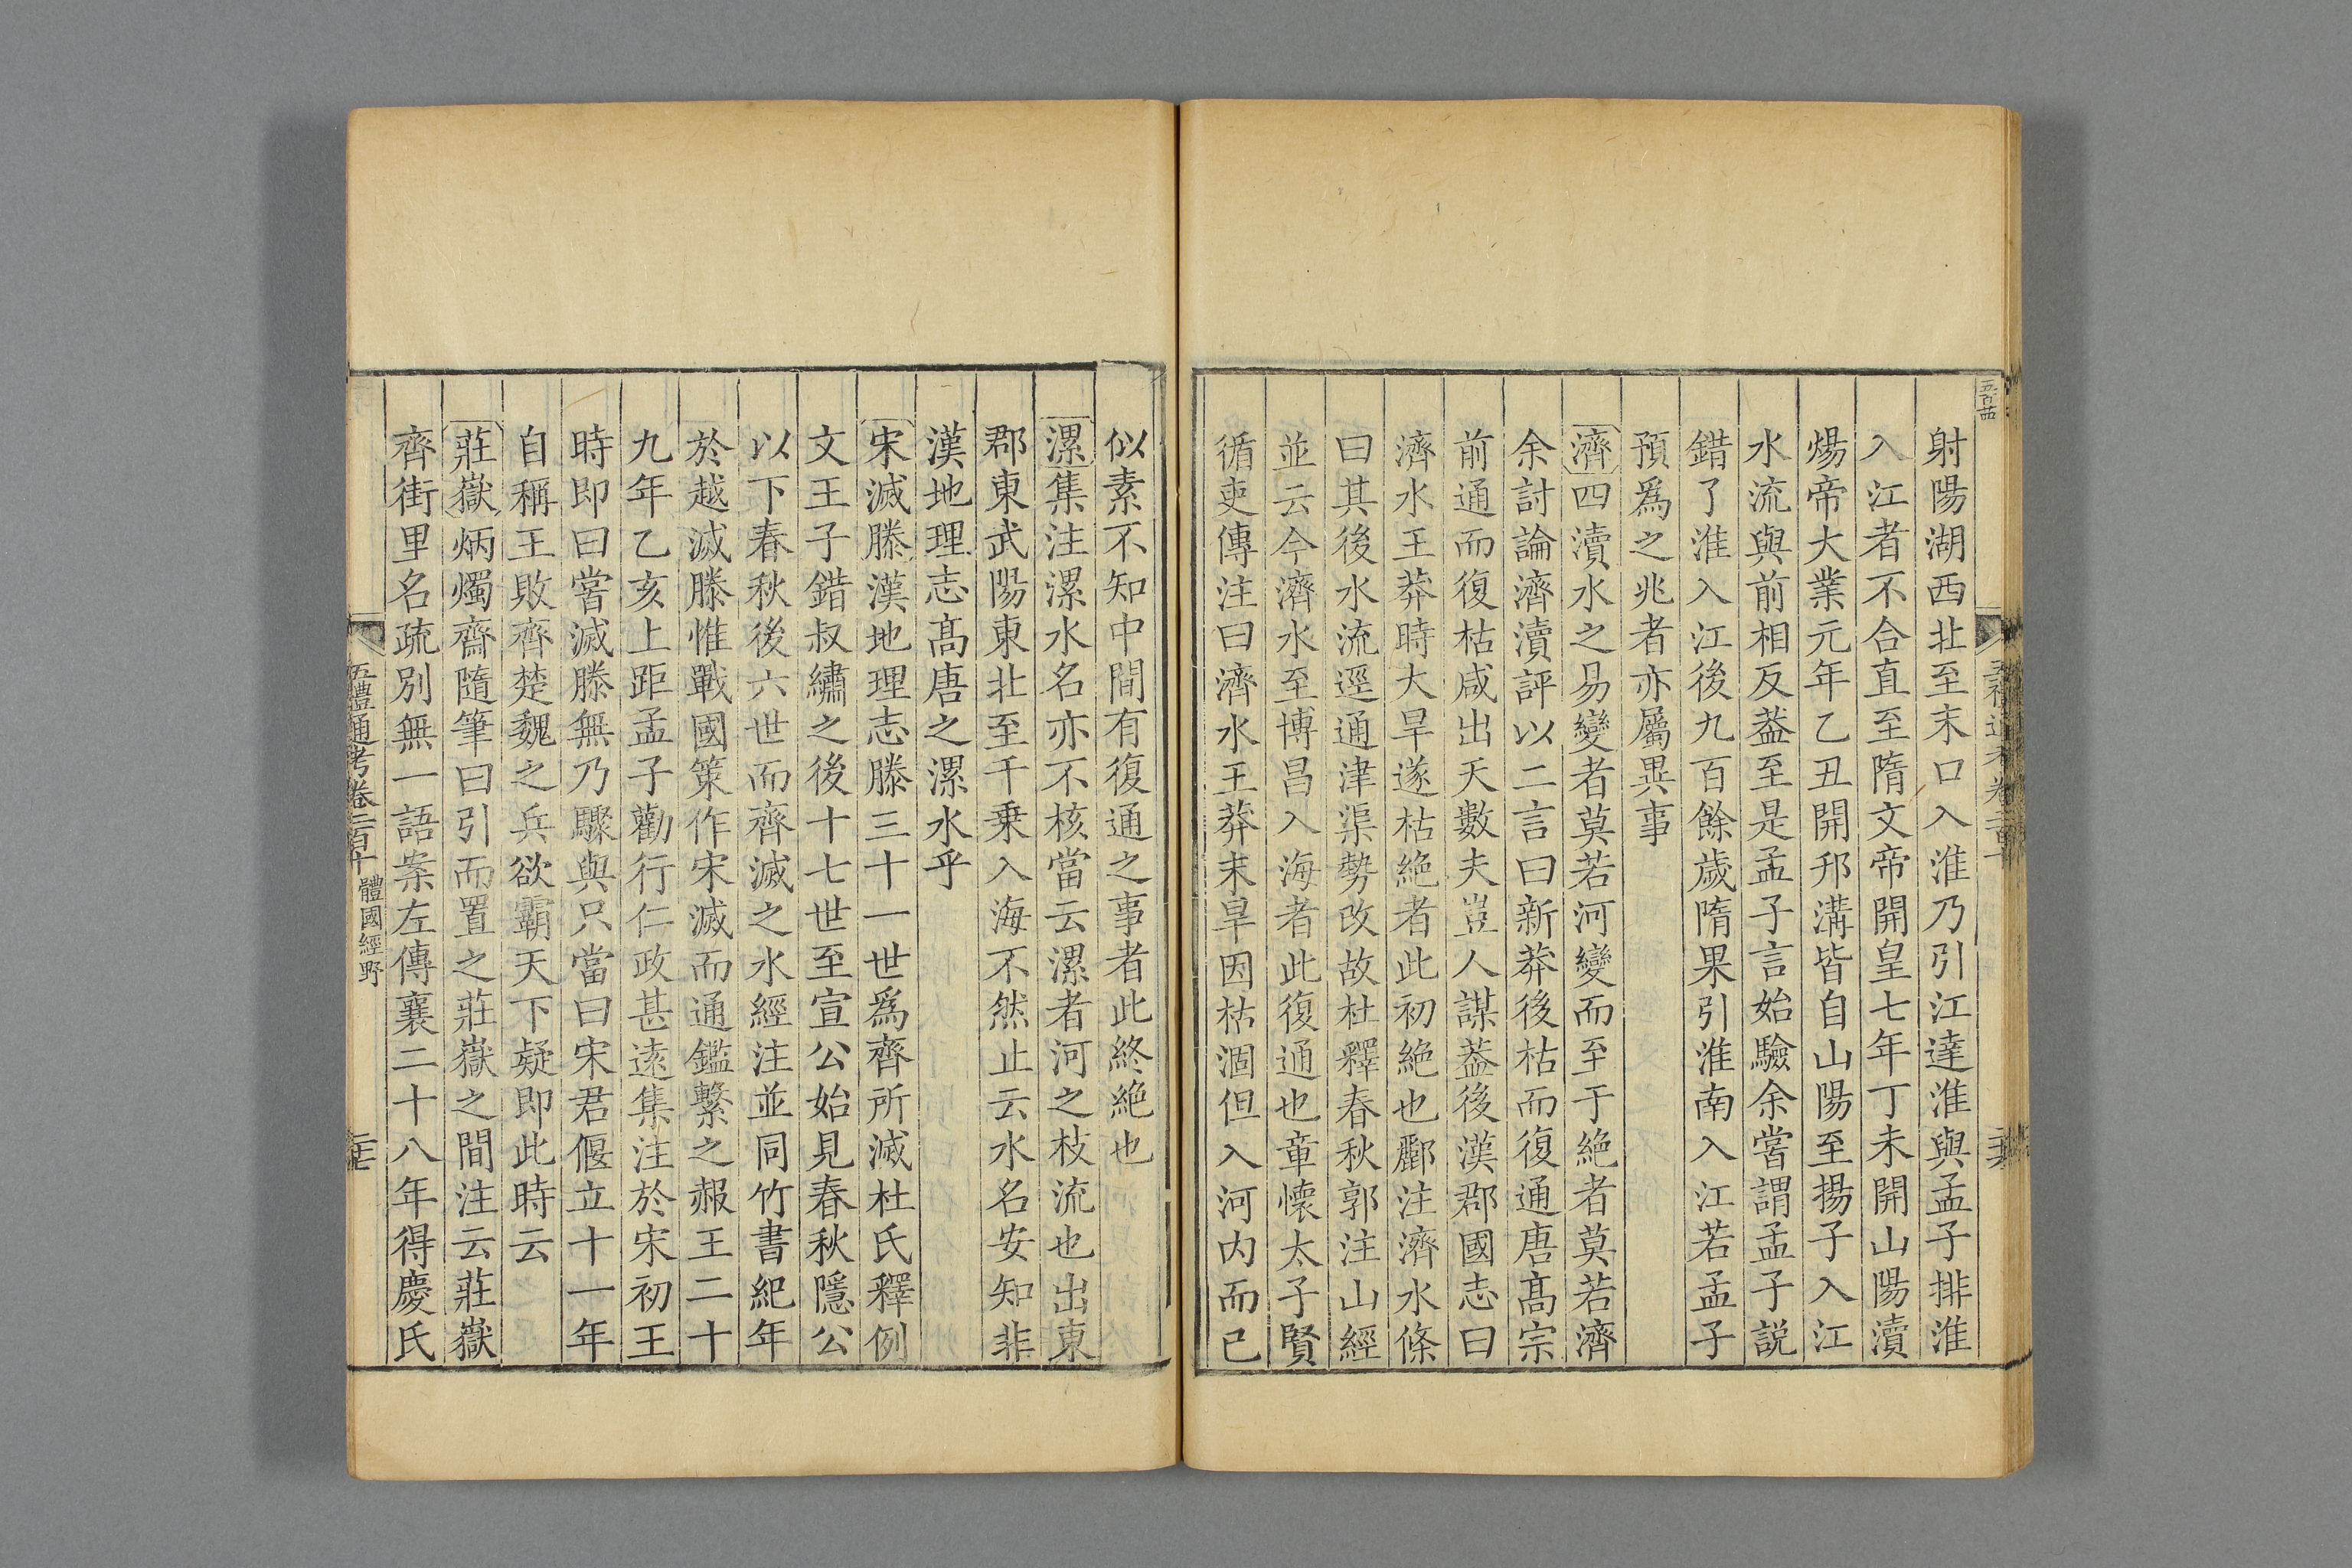 五百茁
射陽湖西北至末口入淮乃引江達淮與孟子排淮
入江者不合直至隋文帝開皇七年丁未開山陽瀆
煬帝大業元年乙丑開邗溝皆自山陽至揚子入江
水流與前相反葢至是孟子言始驗余嘗謂孟子説
錯了淮入江後九百餘歲隋果引淮南入江若孟子
預爲之兆者亦屬異事
濟四瀆水之易變者莫若河變而至于絶者莫若濟
余討論濟瀆評以二言曰新莽後枯而復通唐髙宗
前通而復枯咸出天數夫豈人謀葢後漢郡國志曰
濟水王莽時大旱遂枯絶者此初絶也酈注濟水條
曰其後水流逕通津渠勢改故杜釋春秋郭注山經
並云今濟水至博昌入海者此復通也章懷太子賢
循吏傳注曰濟水王莽末旱因枯涸但入河内而已
似素不知中間有復通之事者此終絶也
漯集注漯水名亦不核當云漯者河之枝流也出東
郡東武陽東北至千乗入海不然止云水名安知非
漢地理志髙唐之漯水乎
宋滅滕漢地理志滕三十一世爲齊所滅杜氏釋例
文王子錯叔繡之後十七世至宣公始見春秋隱公
以下春秋後六世而齊滅之水經注並同竹書紀年
於越滅滕惟戰國策作宋滅而通鑑繫之赧王二十
九年乙亥上距孟子勸行仁政甚逺集注於宋初王
時即曰嘗滅滕無乃驟與只當曰宋君偃立十一年
自稱王敗齊楚魏之兵欲霸天下疑即此時云
莊嶽炳燭齋隨筆曰引而置之莊嶽之間注云莊嶽
齊街里名疏別無一語案左傳襄二十八年得慶氏
五禮通考卷二百十 體國經野 二七